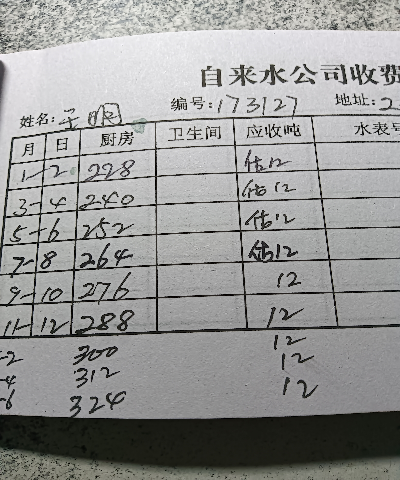 自来水公司收费
姓名: 编号:173127 地址:2
月 日 厨房 卫生间 应收吨 水表号
1-2 228 估12
3-4 240 估12
5-6 252 估12
7-8 264 估12
9-10 276 12
11-12 288 12
-2 300 12
-4 312 12
-6 324 12